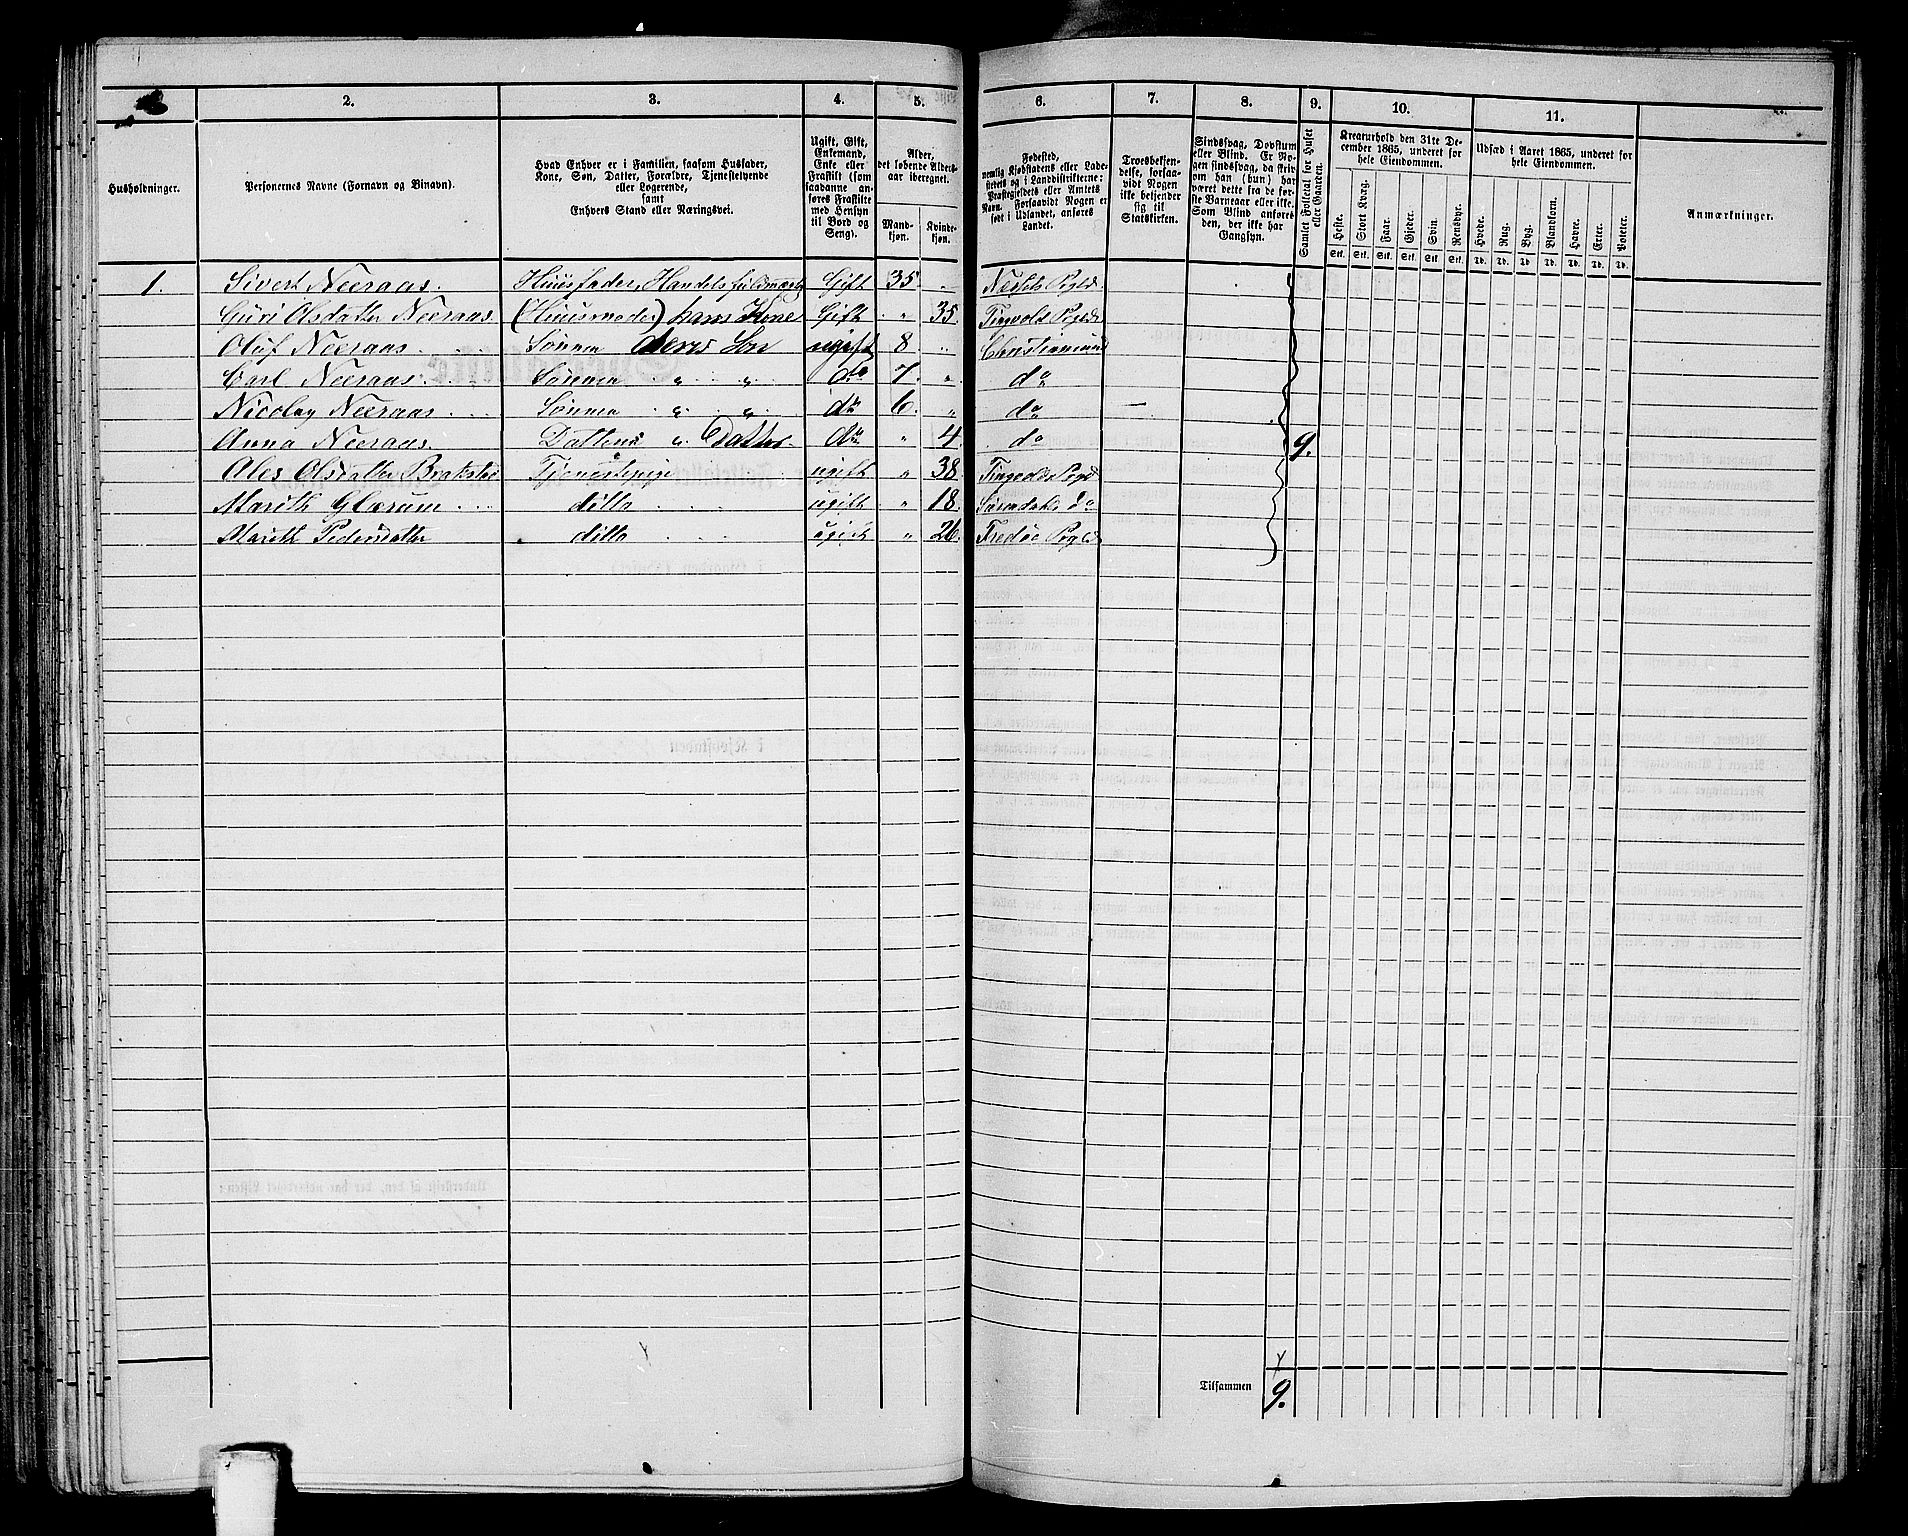 2. 3. 4. 5. 6. 7. 8. 9. 10. 11.
Husholdninger.
Personernes Navne (Fornavn og Binavn).
Hvad Enhver er i Familien, saasom Husfader,
Kone, Søn, Datter, Forældre, Tjenestetyende
eller Logerende,
samt
Enhvers Stand eller Næringsvei.
Ugift, Gift,
Enkemand,
Enke eller
Fraskilt (som
saadanne an-
føres Fraskilte
med Hensyn
til Bord og
Seng).
Alder,
det løbende Alders-
aar iberegnet.
Mand-
kjøn.
Kvinde-
kjøn.
Fødested,
nemlig Kjøbstadens eller Lade-
stedets og i Landdistrikterne:
Præstegjeldets eller Amtets
Navn. Forsaavidt Nogen er
født i Udlandet, anføres
Landet.
Troesbekjen-
delse, forsaa-
vidt Nogen
ikke bekjender
sig til
Statskirken.
Sindssvag, Døvstum
eller Blind. Er No-
gen sindssvag, da skriv
om han (hun) har
været dette fra de før-
ste Barneaar eller ikke.
Som Blind anføres
den, der ikke har
Gangsyn.
Samlet Folketal for Huset
eller Gaarden.
Kreaturhold den 31te De-
cember 1865, underet for
hele Eiendommen.
Heste. Stort Kvæg. Faar. Gjeder. Svin. Rensdyr.
Stk. Stk. Stk. Stk. Stk. Stk.
Udsæd i Aaret 1865, underet for
hele Eiendommen.
Hvede. Rug. Byg. Blandkorn. Havre. Erter. Poteter.
Td. Td. Td. Td. Td. Td. Td.
Anmærkninger.
1. Sivert Neeraas. Huusfader, Handelsfuldmægtig Gift 35 „ Næssets Pgld.
Guri Olsdatter Neeraas. (Huusmoder) hans Kone Gift „ 35. Tingvolds Pgld.
Oluf Neeraas Sønnen deres Søn ugift 8 „ Christiansund
Carl Neeraas. Sønnen „ „ do 7. „ do
Nicolay Neeraas Sønnen „ „ do 6. „ do
Anna Neeraas. Datteren „ Datter. do „ 4. do 9.
Ales Olsdatter Brakstad Tjenestepige ugift „ 38. Tingvolds Pgld.
Marith Glærum ditto ugift „ 18. Surendals do
Marith Pedersdatter ditto ugift „ 26. Fredøe Pgld.
Tilsammen 9.